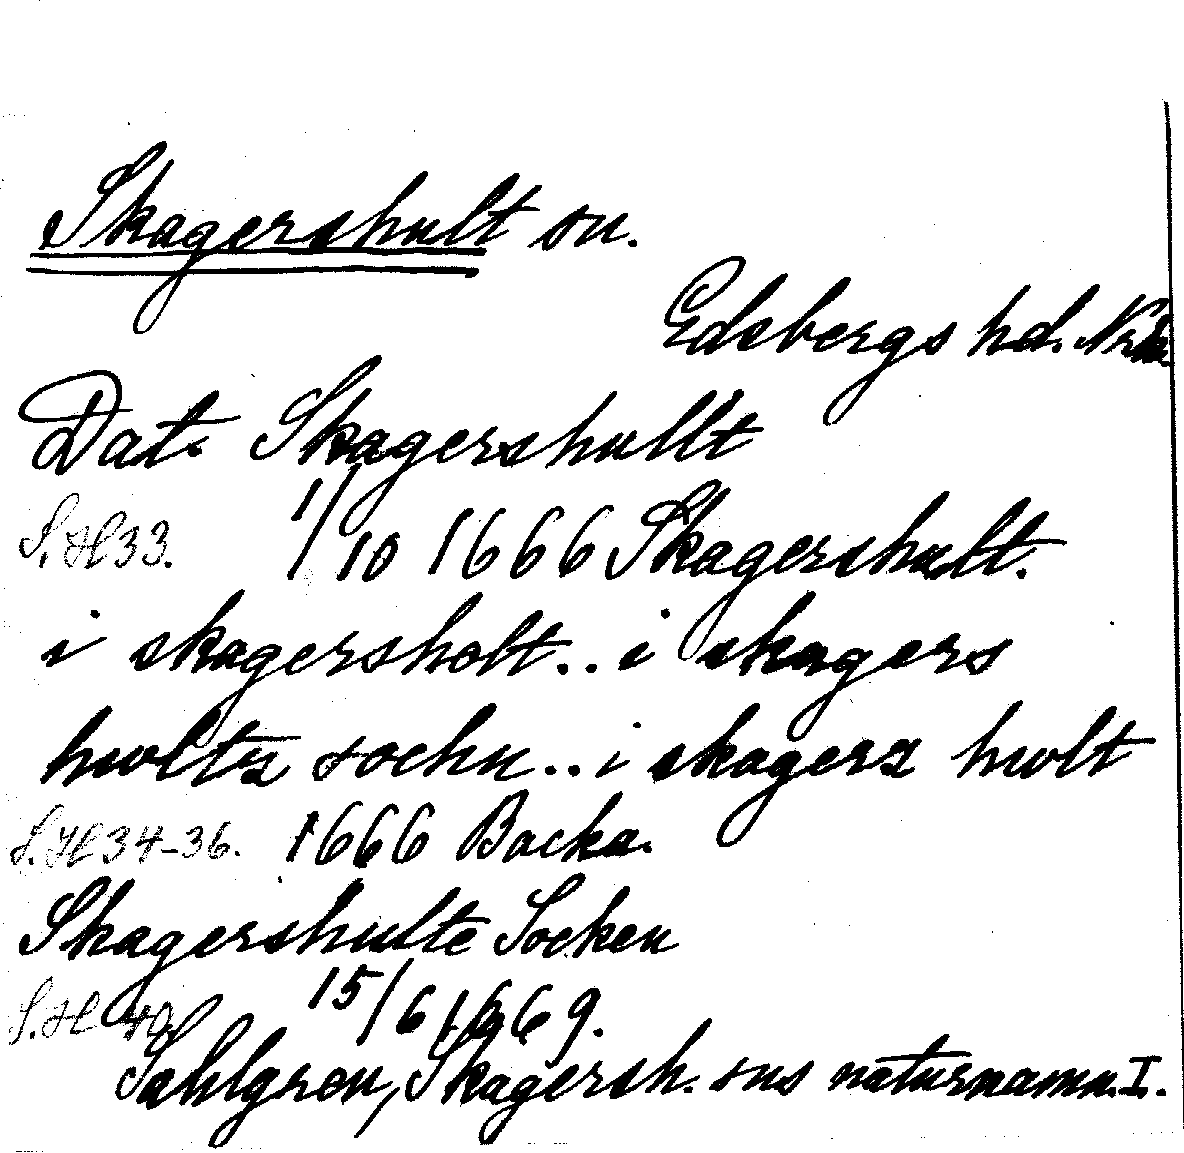 Skagershult sn.
Edsbergs hd.
Dat. Skagershullt
S. H 33. 1/10 1666 Skagershult.
i skagersholt.. i skagers
hwoltz sochn.. i skagerz hwolt
S. H 34-36. 1666 Backa.
Skagershulte Socken
S. H 40. 15/6 1669.
Sahlgren, Skagersh. sns naturnamn. I.